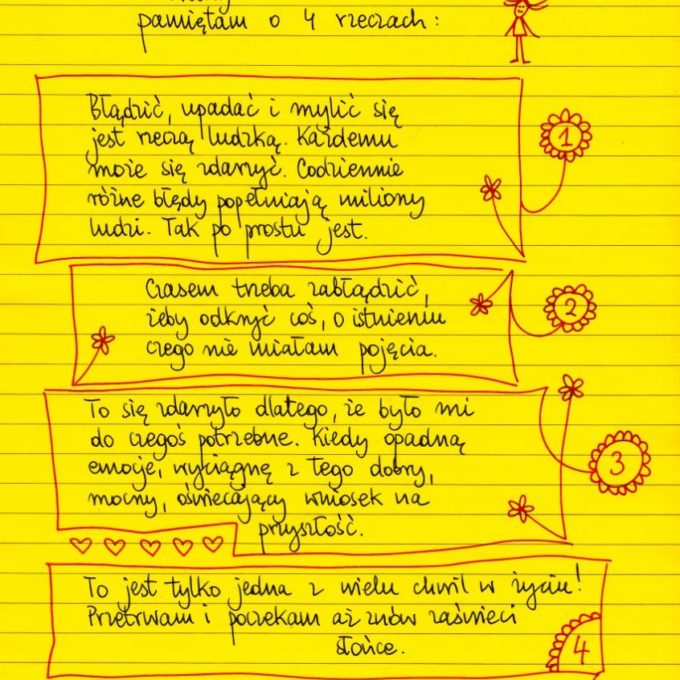 pamiętam o 4 rzeczach:
Błądzić, upadać i mylić się
jest rzeczą ludzką. Każdemu
może się zdarzyć. Codziennie
różne błędy popełniają miliony
ludzi. Tak po prostu jest.
1
Czasem trzeba zabłądzić,
żeby odkryć coś, o istnieniu
czego nie miałam pojęcia.
2
To się zdarzyło dlatego, że było mi
do czegoś potrzebne. Kiedy opadną
emocje, wyciągnę z tego dobry,
mocny, oświecający wniosek na
przyszłość.
3
To jest tylko jedna z wielu chwil w życiu!
Przetrwam i poczekam aż znów zaświeci
słońce.
4